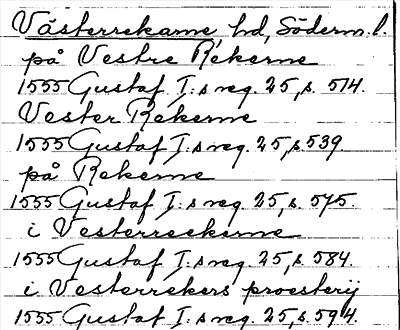 Västerrekarne hd, Söderm. l.
på Vestre Rekerne
1555 Gustaf I:s reg. 25, s. 514.
Vester Rekerne
1555 Gustaf I:s reg. 25, s 539.
på Rekerne
1555 Gustaf I:s reg. 25, s. 575.
i Vesterreckerne
1555 Gustaf I:s reg. 25, s. 584.
i Vesterrekers proesterij
1555 Gustaf I:s reg. 25, s. 594.